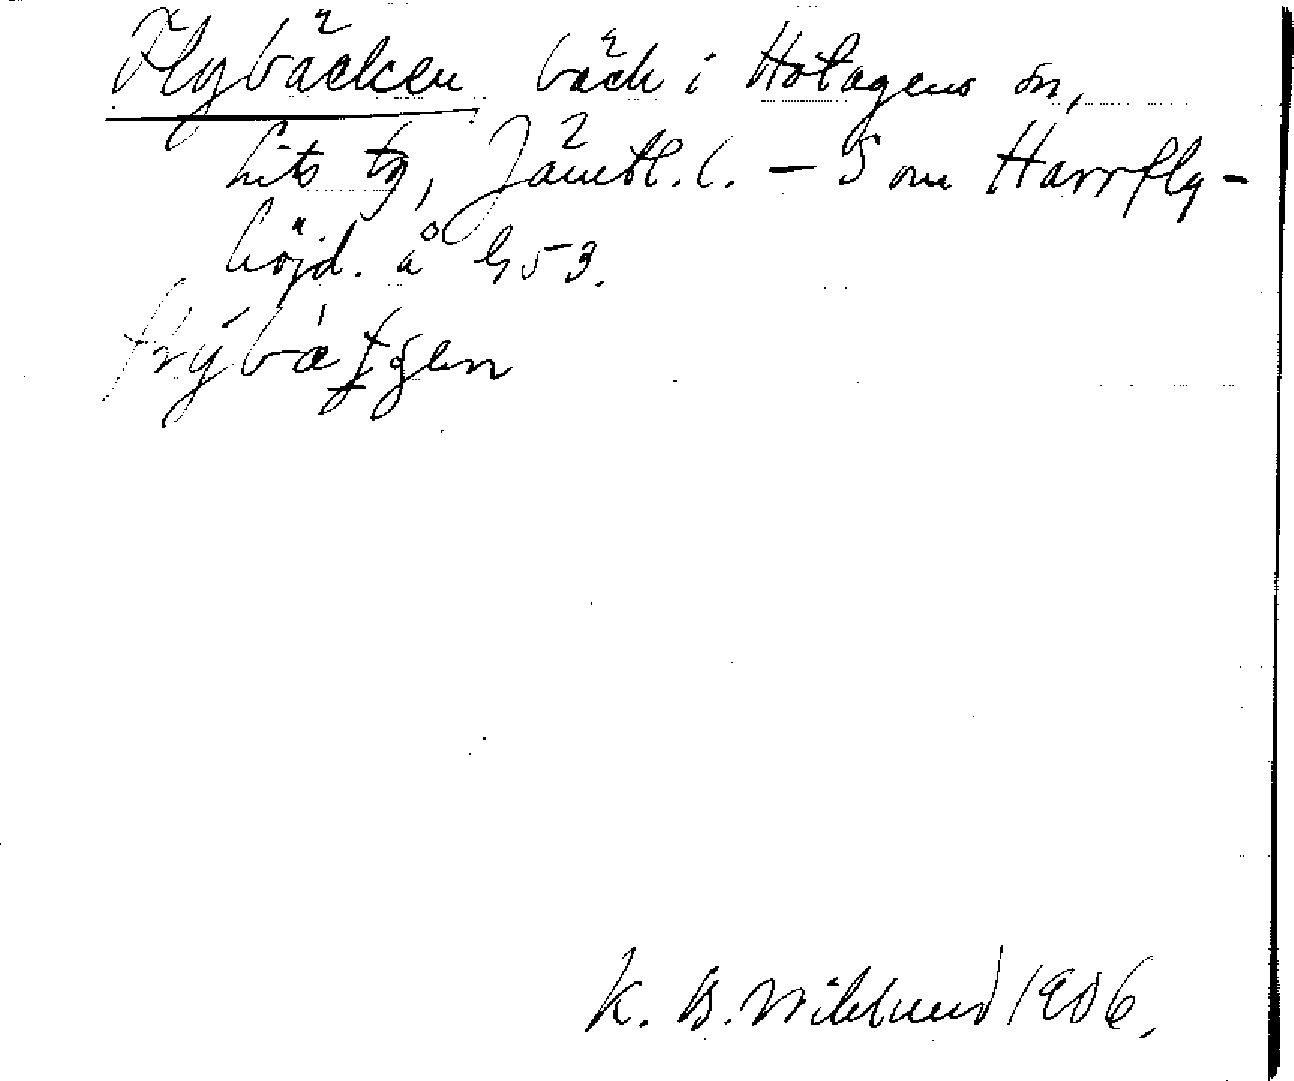 Flybäcken bäck i Hotagens sn,
Lits tg, Jämtl. l. – S om Harrfly-
höjd. å G 53.
K. B. Wiklund 1906.